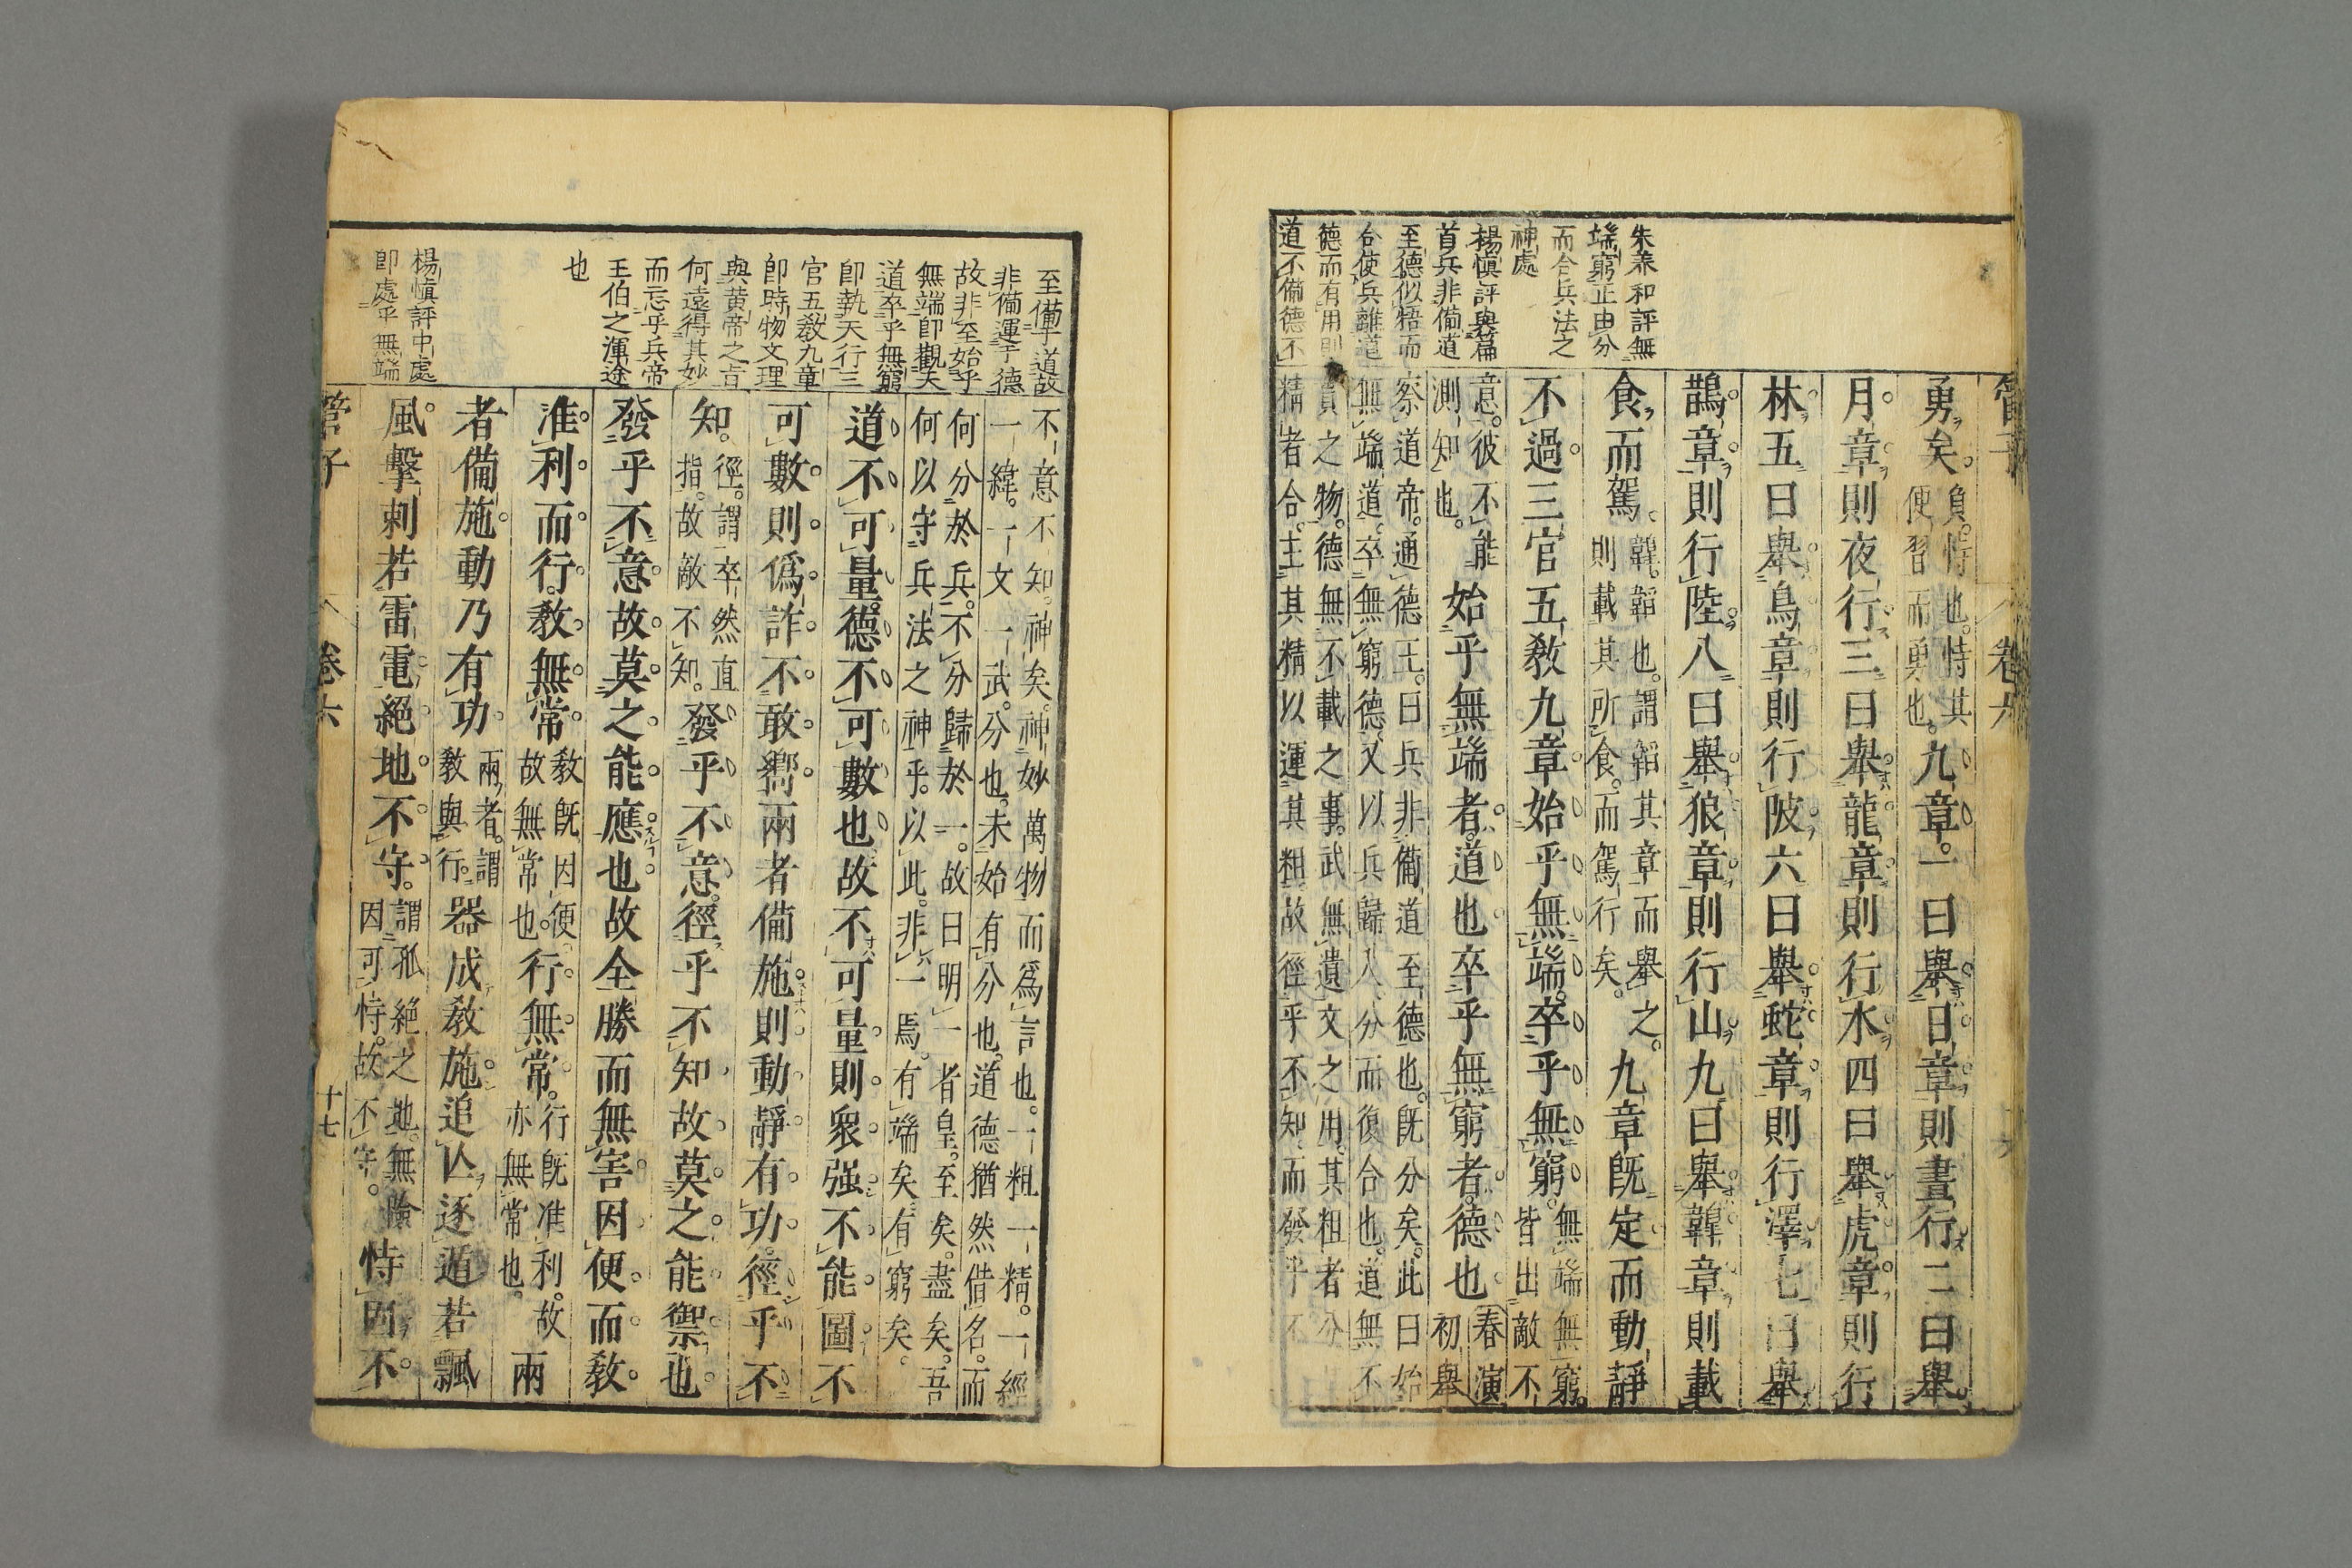 管子
卷六
勇矣。負。恃也。恃其便習而勇也。九章。一曰舉日章則晝行二曰舉
月章則夜行三曰舉龍章則行水四曰舉虎章則行
林五曰舉鳥章則行陂六曰舉蛇章則行澤七曰舉
鵲章則行陸八曰舉狼章則行山九曰舉韟章則載
食而駕。韟。韜也。謂韜其章而舉之。則載其所食。而駕行矣。九章既定而動靜
不過三官五敎九章始乎無端。卒乎無窮。無端無窮。皆出敵不
意。彼不能測知也。始乎無端者。道也卒乎無窮者。德也春演初舉
察道帝。通德王。曰兵非備道至德也。既分矣。此曰始
無端道。卒無窮德。又以兵歸人。分而復合也。道無不
貫之物。德無不載之事。武無遺文之用。其粗者分
精者合。主其精以運其粗故徑乎不知。而發乎不
朱養和評無
端窮正由分
而合兵法之
神處
楊慎評輿篇
首兵非備道
至德似悟而
合使兵離道
德而有用則
道不備德不
不意不知。神矣。神妙萬物而爲言也。一粗一精。一經
一緯。一文一武。分也。未始有分也。道德猶然借名。而
何分於兵。不分歸於一。故曰明一者皇。至矣。盡矣。吾
何以守兵法之神乎。以此。非一焉。有端矣。有窮矣。
道不可量。德不可數也故不可量則衆强不能圖不
可數則僞詐不敢嚮兩者備施則動靜有功。徑乎不
知。徑。謂卒然直指。故敵不知。發乎不意。徑乎不知故莫之能禦也。
發乎不意故莫之能應也。故全勝而無害因便而敎。
准利而行。敎無常。敎既因便。故無常也。行無常。行既准利。故亦無常也。兩
者備施動乃有功。兩者。謂敎與行。器成敎施。追亾逐遁若飄
風擊刺若雷電絕地不守。謂孤絕之地。無險因可恃。故不守。恃固不
至備乎道故
非備運乎德
故非至始乎
無端卽觀天
道卒乎無窮
卽執天行三
官五敎九章
卽時物文理
與黄帝之旨
何遠得其妙
而忘乎兵帝
王伯之渾途
也
楊慎評中處
卽處乎無端
管子
卷六
十七